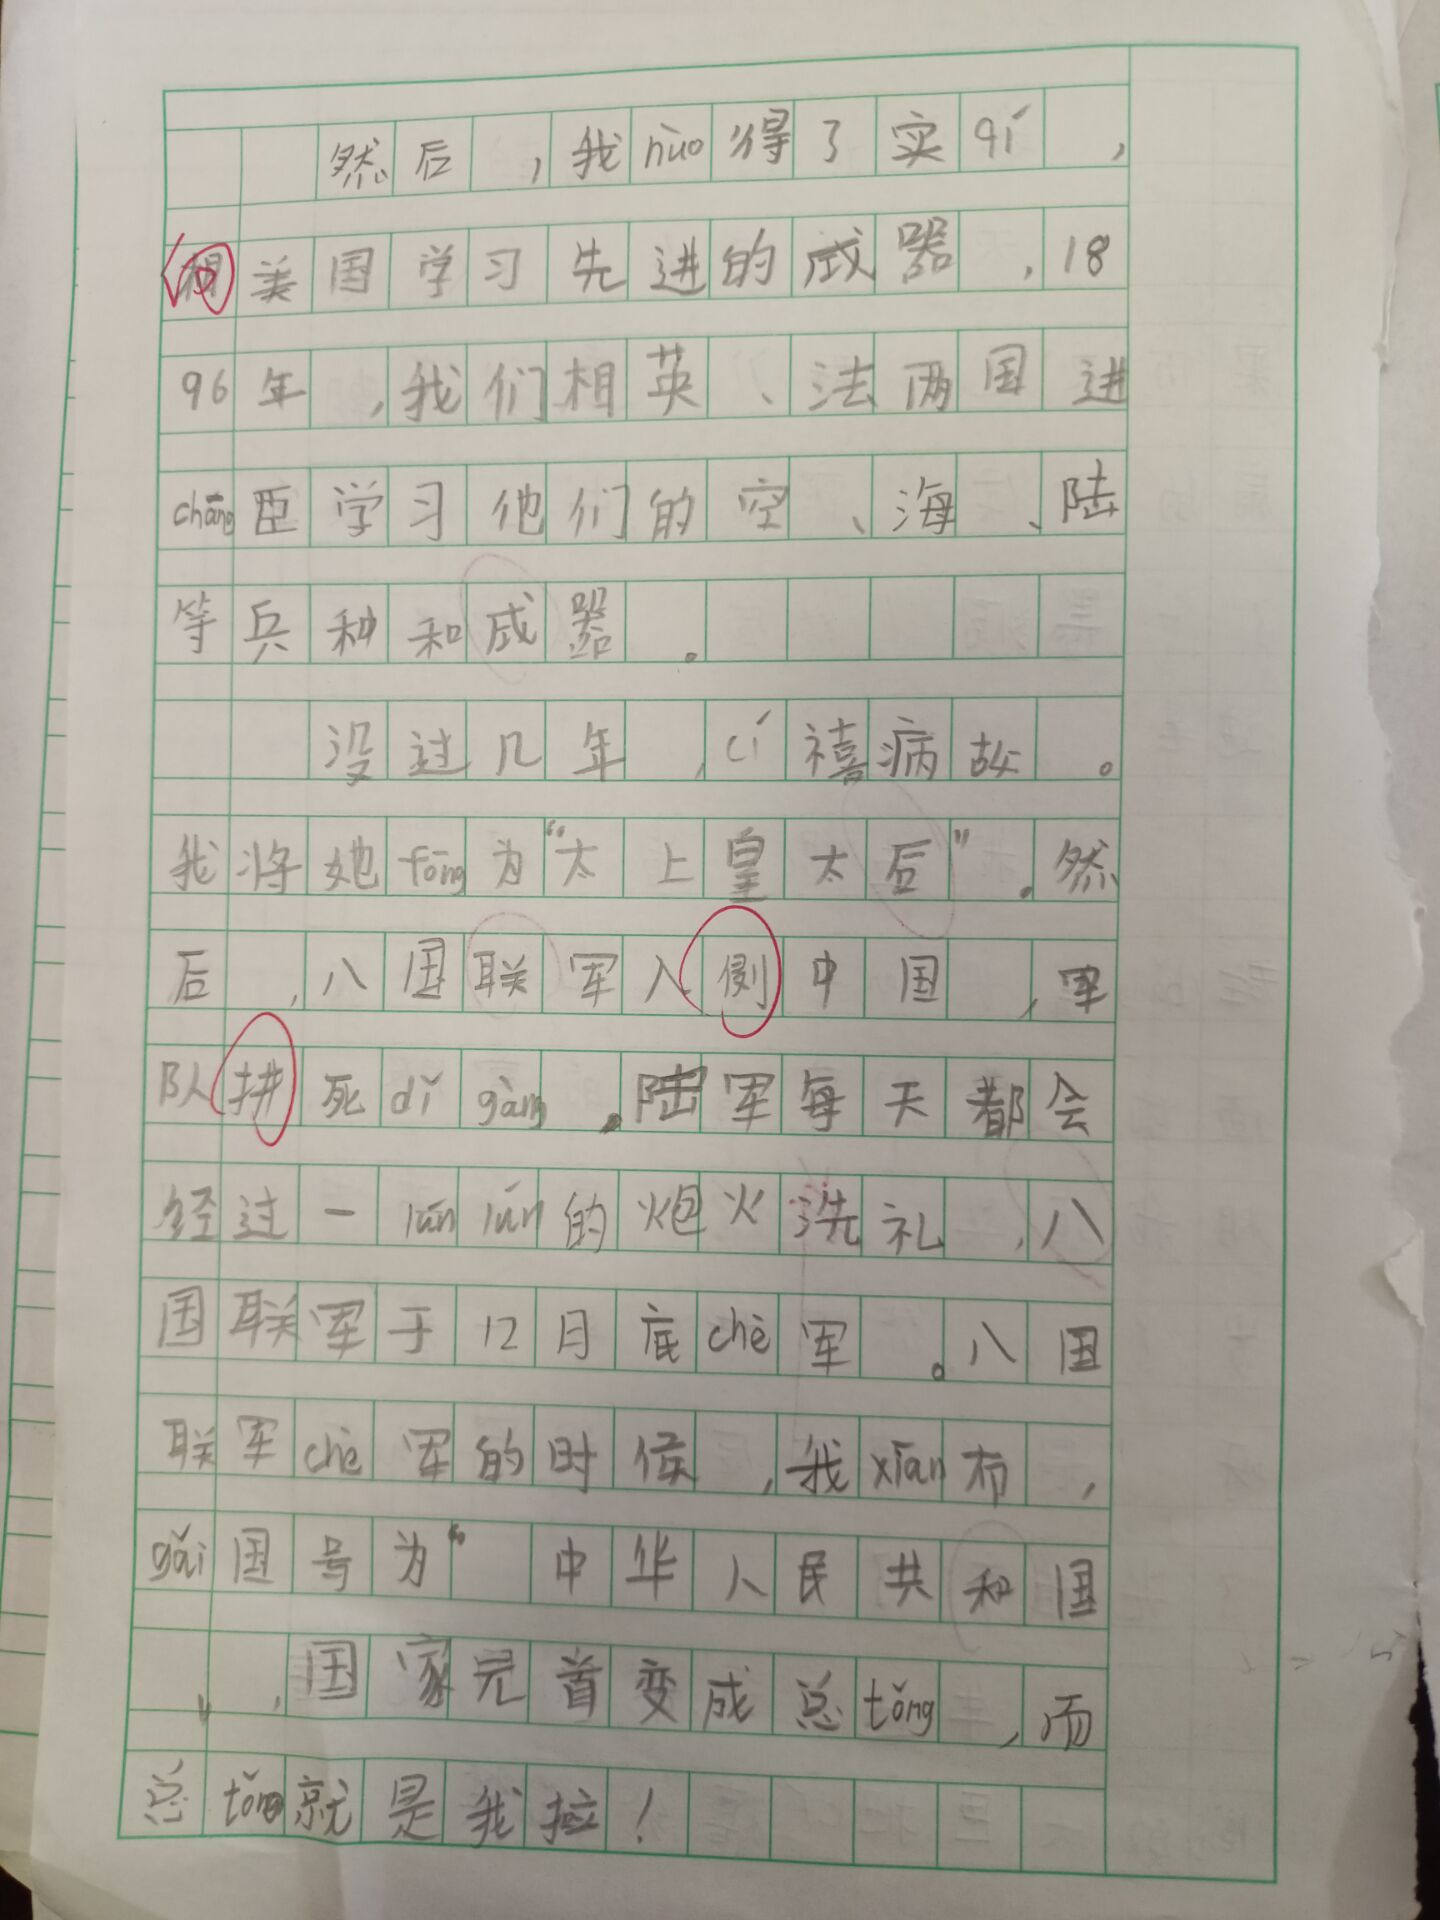 然后，我huò得了实qí，
相美国学习先进的武器，18
96年，我们相英、法两国进
chāng臣学习他们的空、海、陆
等兵种和武器。
没过几年，cí禧病故。
我将她fōng为“太上皇太后”。然
后，八国联军入侧中国，军
队拼死dǐ gàng。陆军每天都会
经过一lún lún的炮火洗礼，八
国联军于12月底chè军。八国
联军chè军的时候，我xiān布，
gǎi国号为“中华人民共和国
”，国家元首变成总tǒng，而
总tǒng就是我拉！